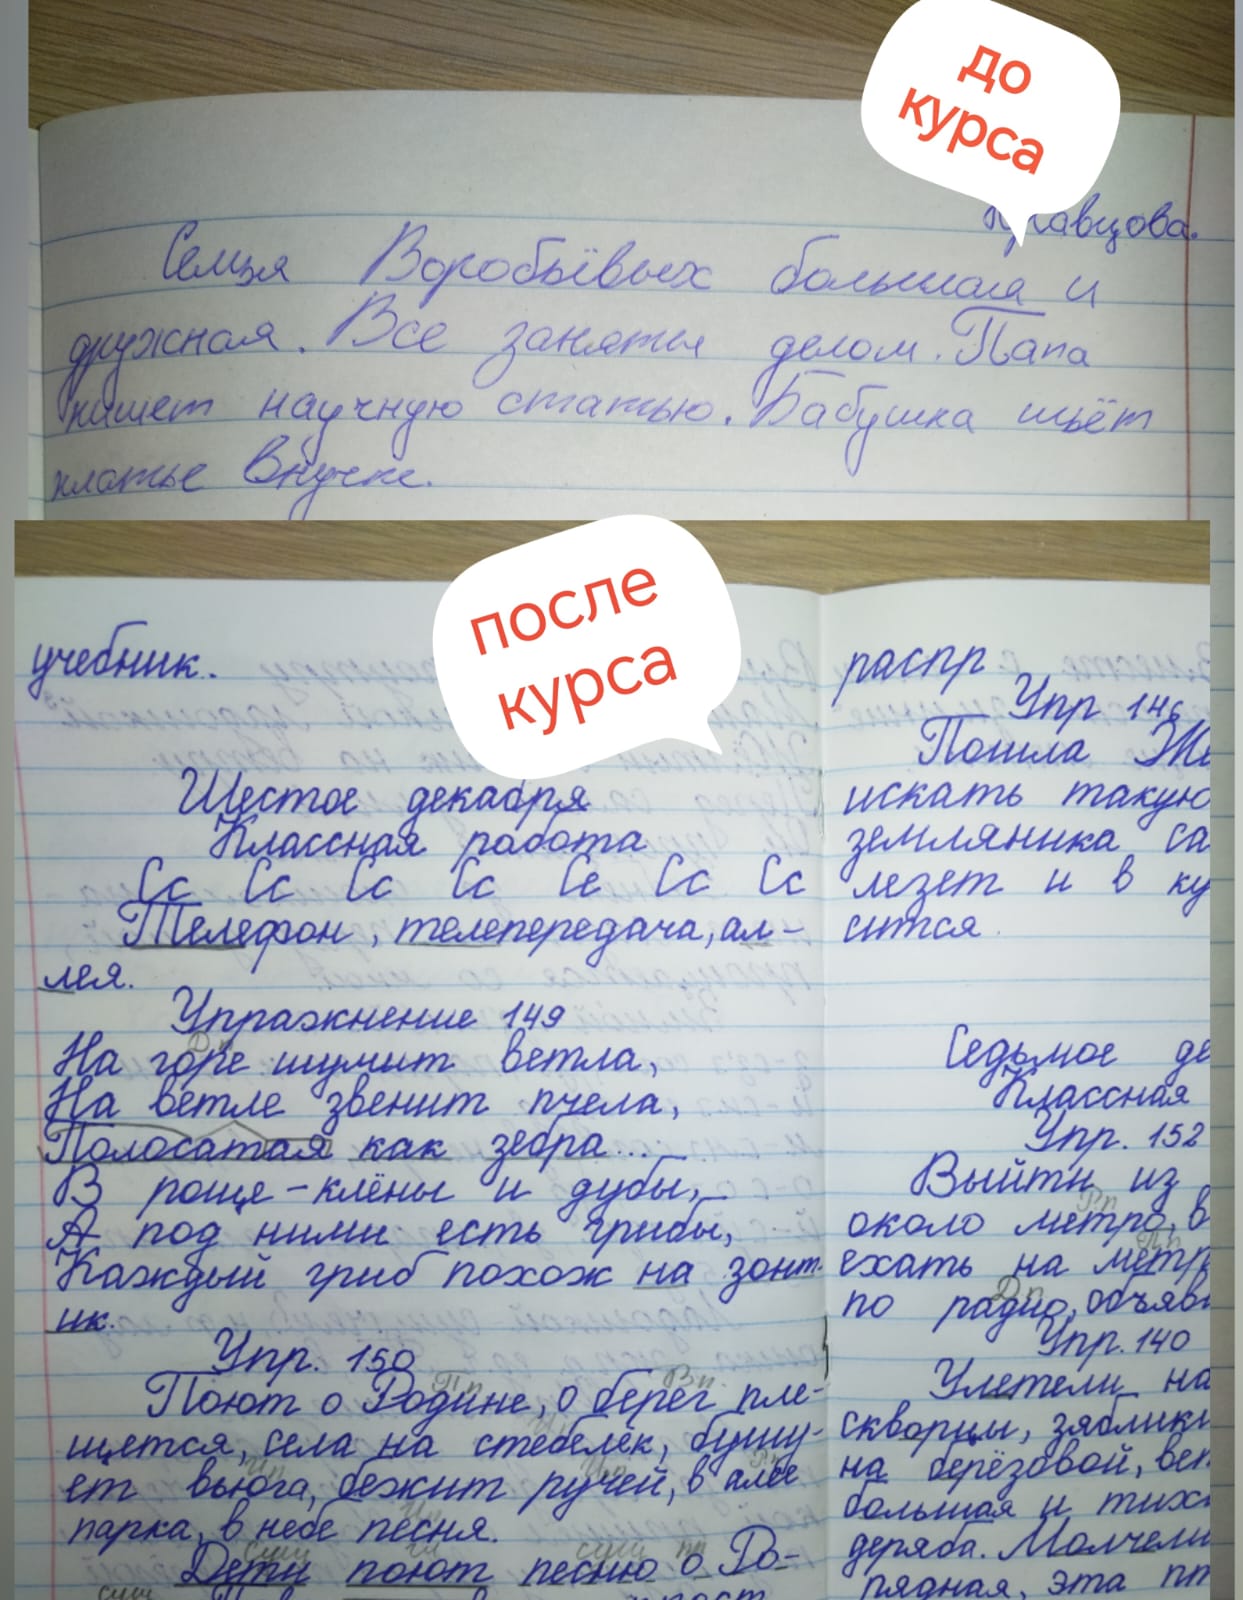 до
курса
Кравцова.
Семья Воробьёвых большая и
дружная. Все заняты делом. Папа
пишет научную статью. Бабушка шьёт
платье внучке.
после
курса
учебник.
Шестое декабря
Классная работа
Сс Сс Сс Сс Сс Сс Сс
Телефон, телепередача, ал-
лея.
Упражнение 149
На горе шумит ветла,
На ветле звенит пчела,
Полосатая как зебра...
В роще - клёны и дубы,
А под ними есть грибы,
Каждый гриб похож на зонт-
ик.
Упр. 150
Поют о Родине, о берег пле-
щется, села на стебелёк, бушу-
ет вьюга, бежит ручей, в алее
парка, в небе песня.
Дети поют песню о Ро-
распр
Упр 146
Пошла Же
искать такую
земляника са
лезет и в ку
сится.
Седьмое де
Классная
Упр. 152
Выйти из
около метро, в
ехать на метр
по радио, объяв
Упр. 140
Улетели на
скворцы, зяблики
на берёзовой, вет
большая и тих
деряба. Молчели
рядная, эта пт